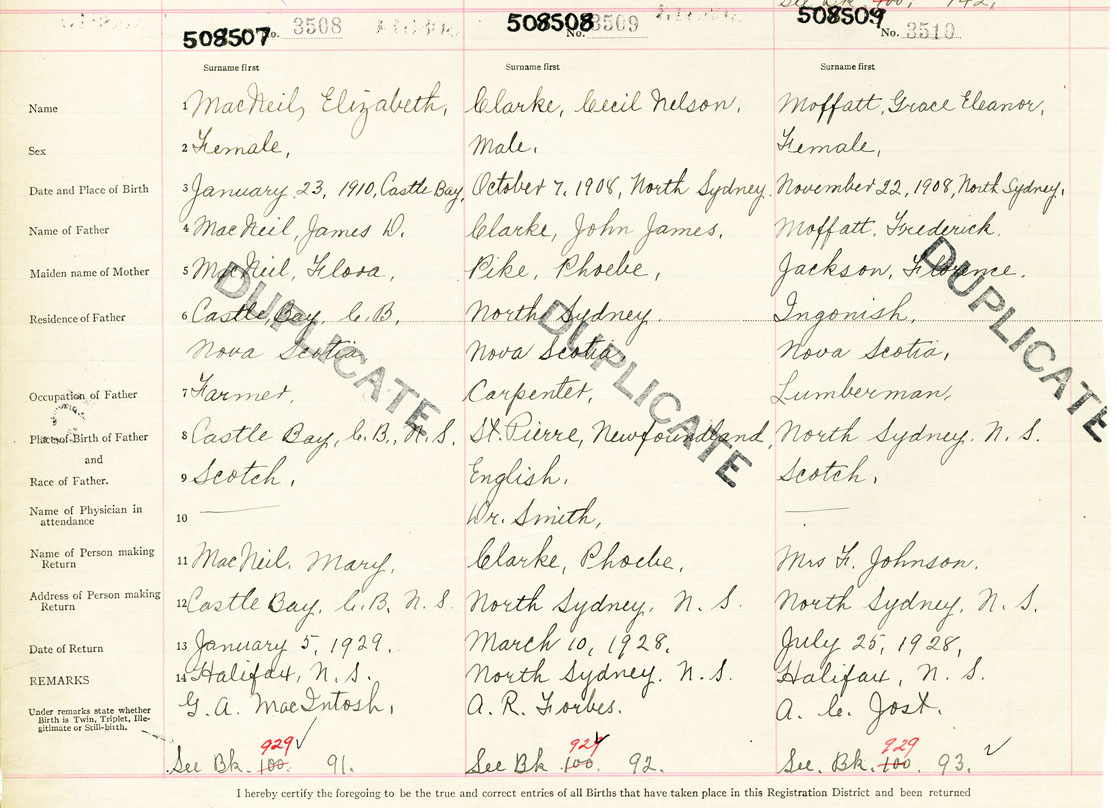 See Bk 100, 142,
508507 No. 3508 508508 No. 3509 508509 No. 3510
Surname first Surname first Surname first
Name 1 MacNeil, Elizabeth, Clarke, Cecil Nelson, Moffatt, Grace Eleanor,
Sex 2 Female, Male, Female,
Date and Place of Birth 3 January 23, 1910, Castle Bay, October 7, 1908, North Sydney. November 22, 1908, North Sydney,
Name of Father 4 MacNeil, James D. Clarke, John James, Moffatt, Frederick.
Maiden name of Mother 5 MacNeil, Flora, Pike, Phoebe, Jackson, Florence.
Residence of Father 6 Castle Bay, C.B, North Sydney. Ingonish,
Nova Scotia Nova Scotia Nova Scotia,
DUPLICATE DUPLICATE DUPLICATE
Occupation of Father 7 Farmer, Carpenter, Lumberman,
Place of Birth of Father 8 Castle Bay, C.B., N.S. St. Pierre, Newfoundland, North Sydney. N.S.
and
Race of Father. 9 Scotch, English, Scotch,
Name of Physician in
attendance 10 Dr. Smith,
Name of Person making
Return 11 MacNeil, Mary, Clarke, Phoebe, Mrs F. Johnson.
Address of Person making
Return 12 Castle Bay, C.B, N.S. North Sydney, N.S. North Sydney, N.S.
Date of Return 13 January 5, 1929, March 10, 1928, July 25, 1928,
REMARKS 14 Halifax, N.S. North Sydney. N.S. Halifax, N.S.
Under remarks state whether
Birth is Twin, Triplet, Ille-
gitimate or Still-birth.
G. A. MacIntosh, A. R. Forbes. A. C. Jost.
929 929 929
See Bk. 100. 91. See Bk 100. 92. See. Bk. 100. 93.
I hereby certify the foregoing to be the true and correct entries of all Births that have taken place in this Registration District and been returned